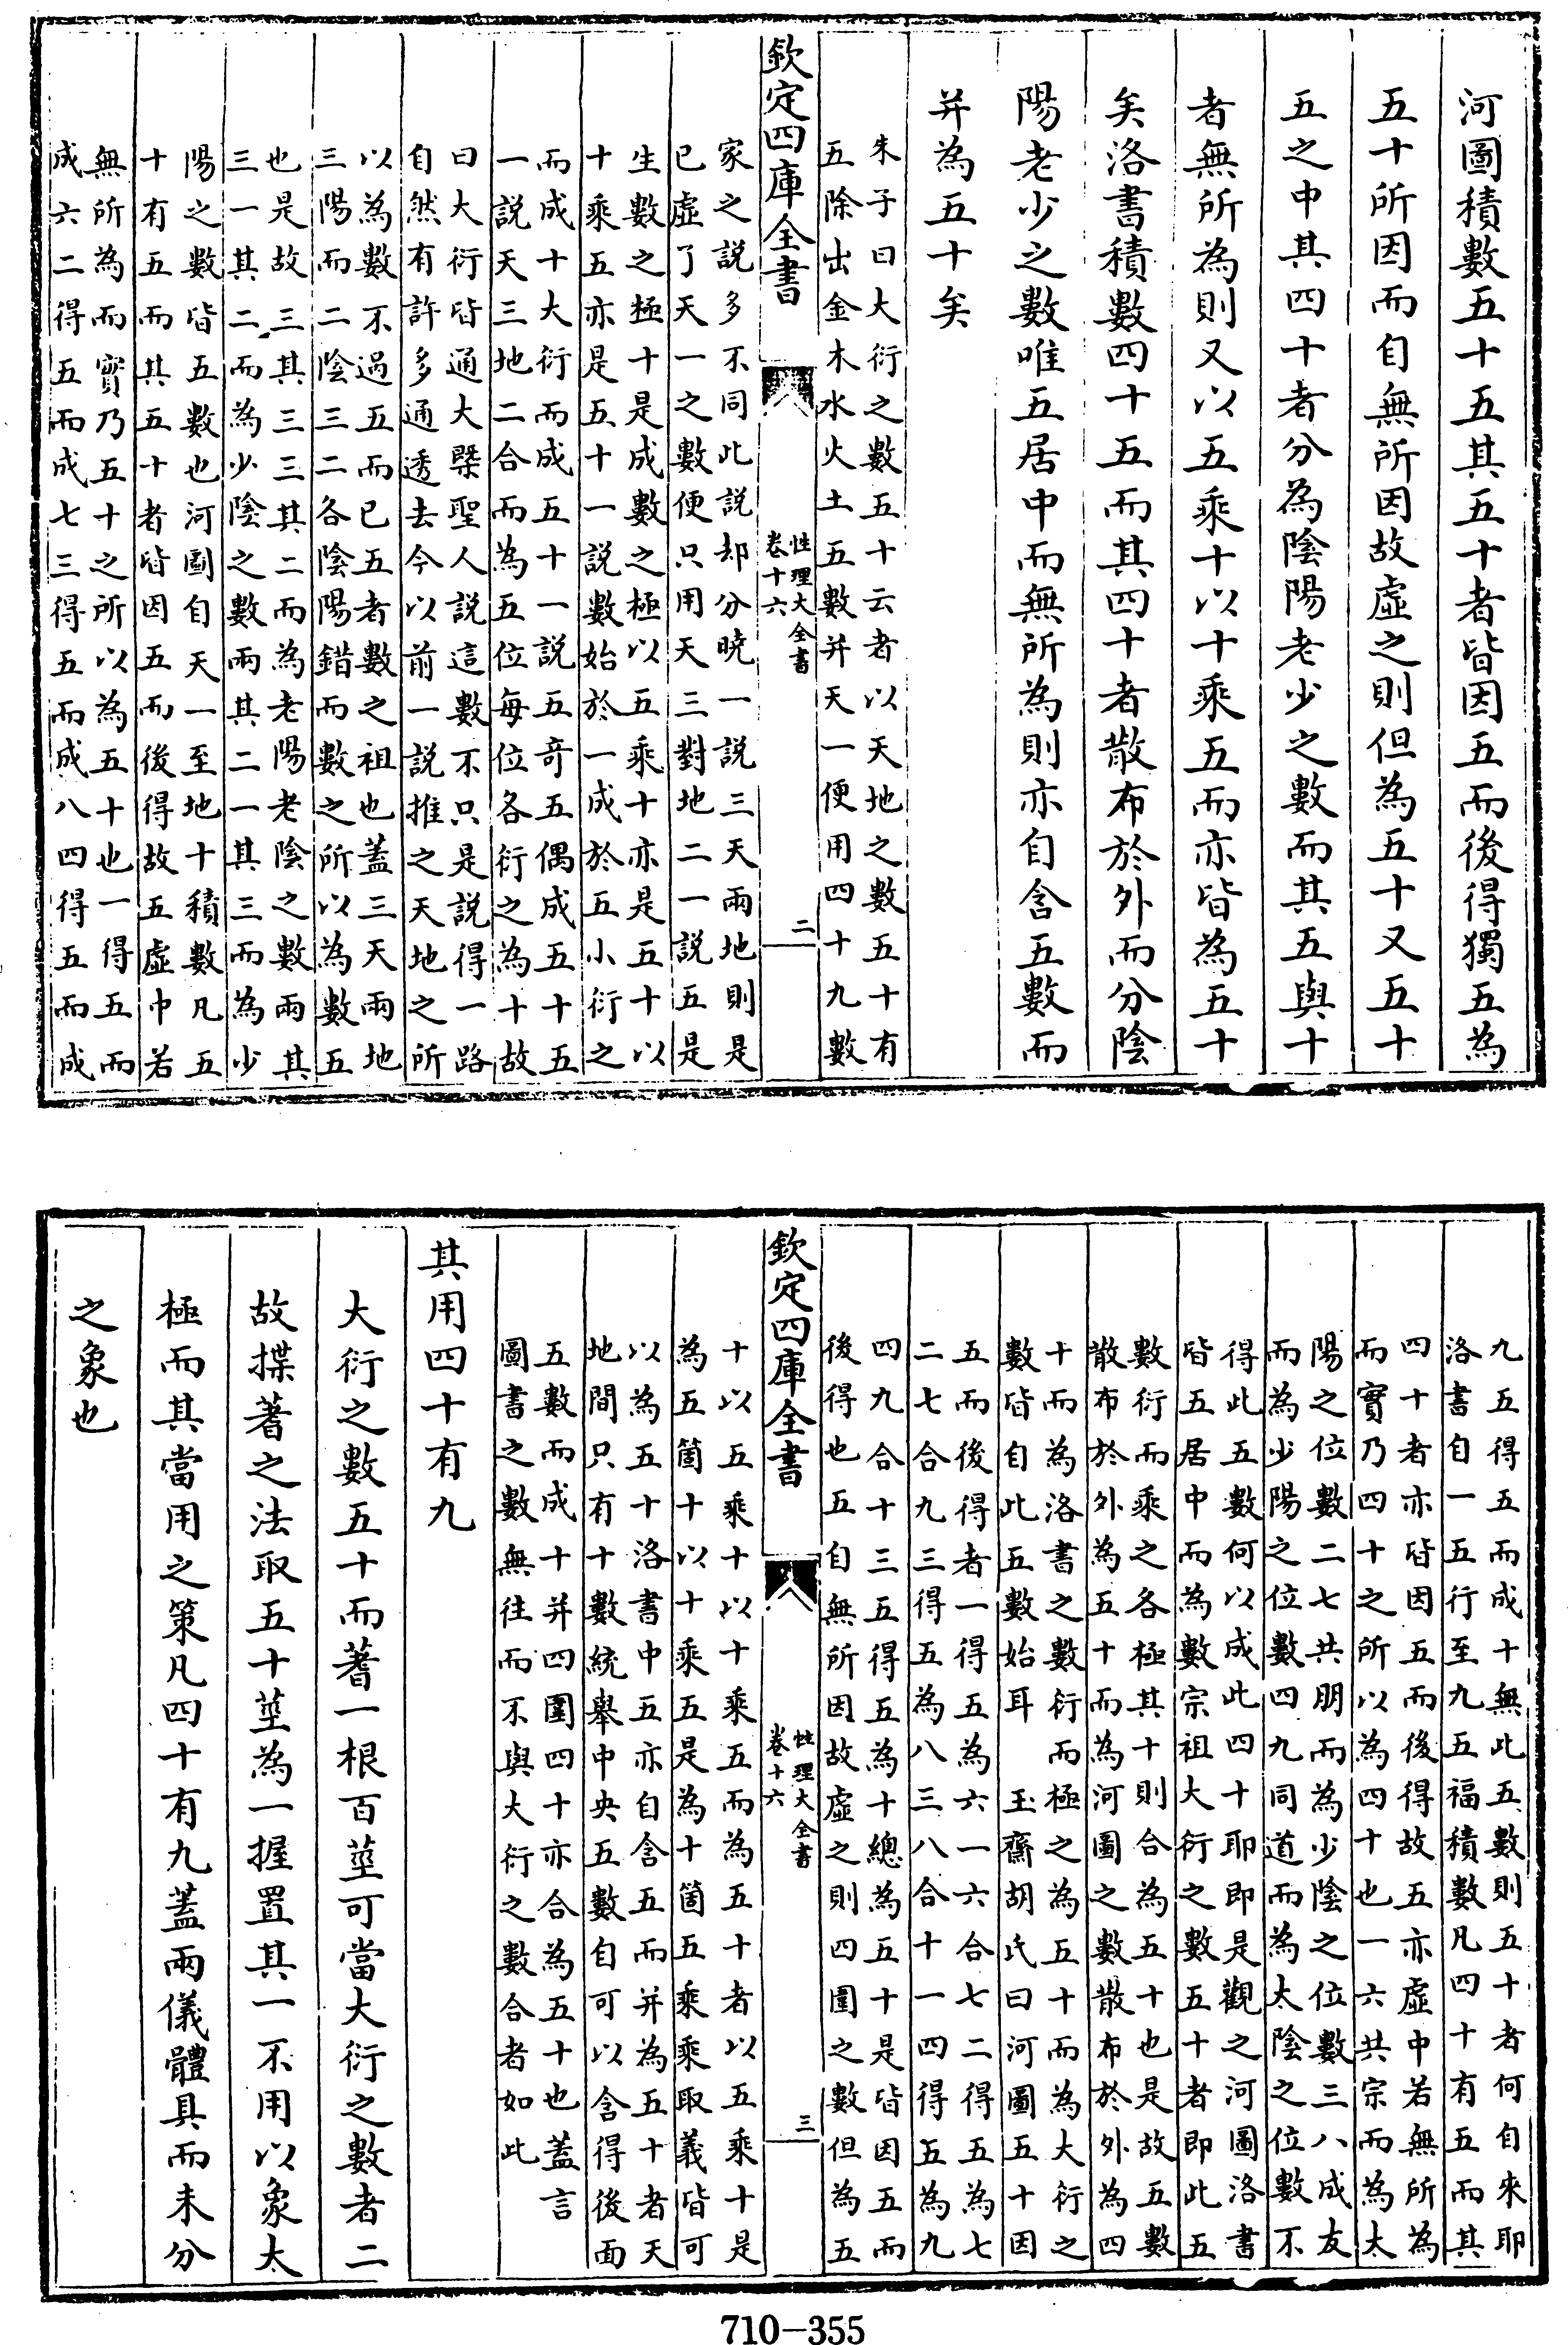 河圖積數五十五其五十者皆因五而後得獨五為
五十所因而自無所因故虛之則但為五十又五十
五之中其四十者分為陰陽老少之數而其五與十
者無所為則又以五乘十以十乘五而亦皆為五十
矣洛書積數四十五而其四十者散布於外而分陰
陽老少之數唯五居中而無所為則亦自含五數而
并為五十矣
朱子曰大衍之數五十云者以天地之數五十有
五除出金木水火土五數并天一便用四十九數
欽定四庫全書
性理大全書
卷十六
二
家之說多不同此說却分曉一說三天兩地則是
已虛了天一之數便只用天三對地二一說五是
生數之極十是成數之極以五乘十亦是五十以
十乘五亦是五十一說數始於一成於五小衍之
而成十大衍而成五十一說五奇五偶成五十五
一說天三地二合而為五位每位各衍之為十故
曰大衍皆通大槩聖人說這數不只是說得一路
自然有許多通透去今以前一說推之天地之所
以為數不過五而已五者數之祖也蓋三天兩地
三陽而二陰三二各陰陽錯而數之所以為數五
也是故三其三三其二而為老陽老陰之數兩其
三一其二而為少陰之數兩其二一其三而為少
陽之數皆五數也河圖自天一至地十積數凡五
十有五而其五十者皆因五而後得故五虛中若
無所為而實乃五十之所以為五十也一得五而
成六二得五而成七三得五而成八四得五而成
九五得五而成十無此五數則五十者何自來耶
洛書自一五行至九五福積數凡四十有五而其
四十者亦皆因五而後得故五亦虛中若無所為
而實乃四十之所以為四十也一六共宗而為太
陽之位數二七共朋而為少陰之位數三八成友
而為少陽之位數四九同道而為太陰之位數不
得此五數何以成此四十耶即是觀之河圖洛書
皆五居中而為數宗祖大衍之數五十者即此五
數衍而乘之各極其十則合為五十也是故五數
散布於外為五十而為河圖之數散布於外為四
十而為洛書之數衍而極之為五十而為大衍之
數皆自此五數始耳 玉齋胡氏曰河圖五十因
五而後得者一得五為六一六合七二得五為七
二七合九三得五為八三八合十一四得五為九
四九合十三五得五為十總為五十是皆因五而
後得也五自無所因故虛之則四圍之數但為五
欽定四庫全書
性理大全書
卷十六
三
十以五乘十以十乘五而為五十者以五乘十是
為五箇十以十乘五是為十箇五乘乘取義皆可
以為五十洛書中五亦自含五而并為五十者天
地間只有十數統舉中央五數自可以含得後面
五數而成十并四圍四十亦合為五十也蓋言
圖書之數無往而不與大衍之數合者如此
其用四十有九
大衍之數五十而蓍一根百莖可當大衍之數者二
故揲蓍之法取五十莖為一握置其一不用以象太
極而其當用之策凡四十有九蓋兩儀體具而未分
之象也
710-355